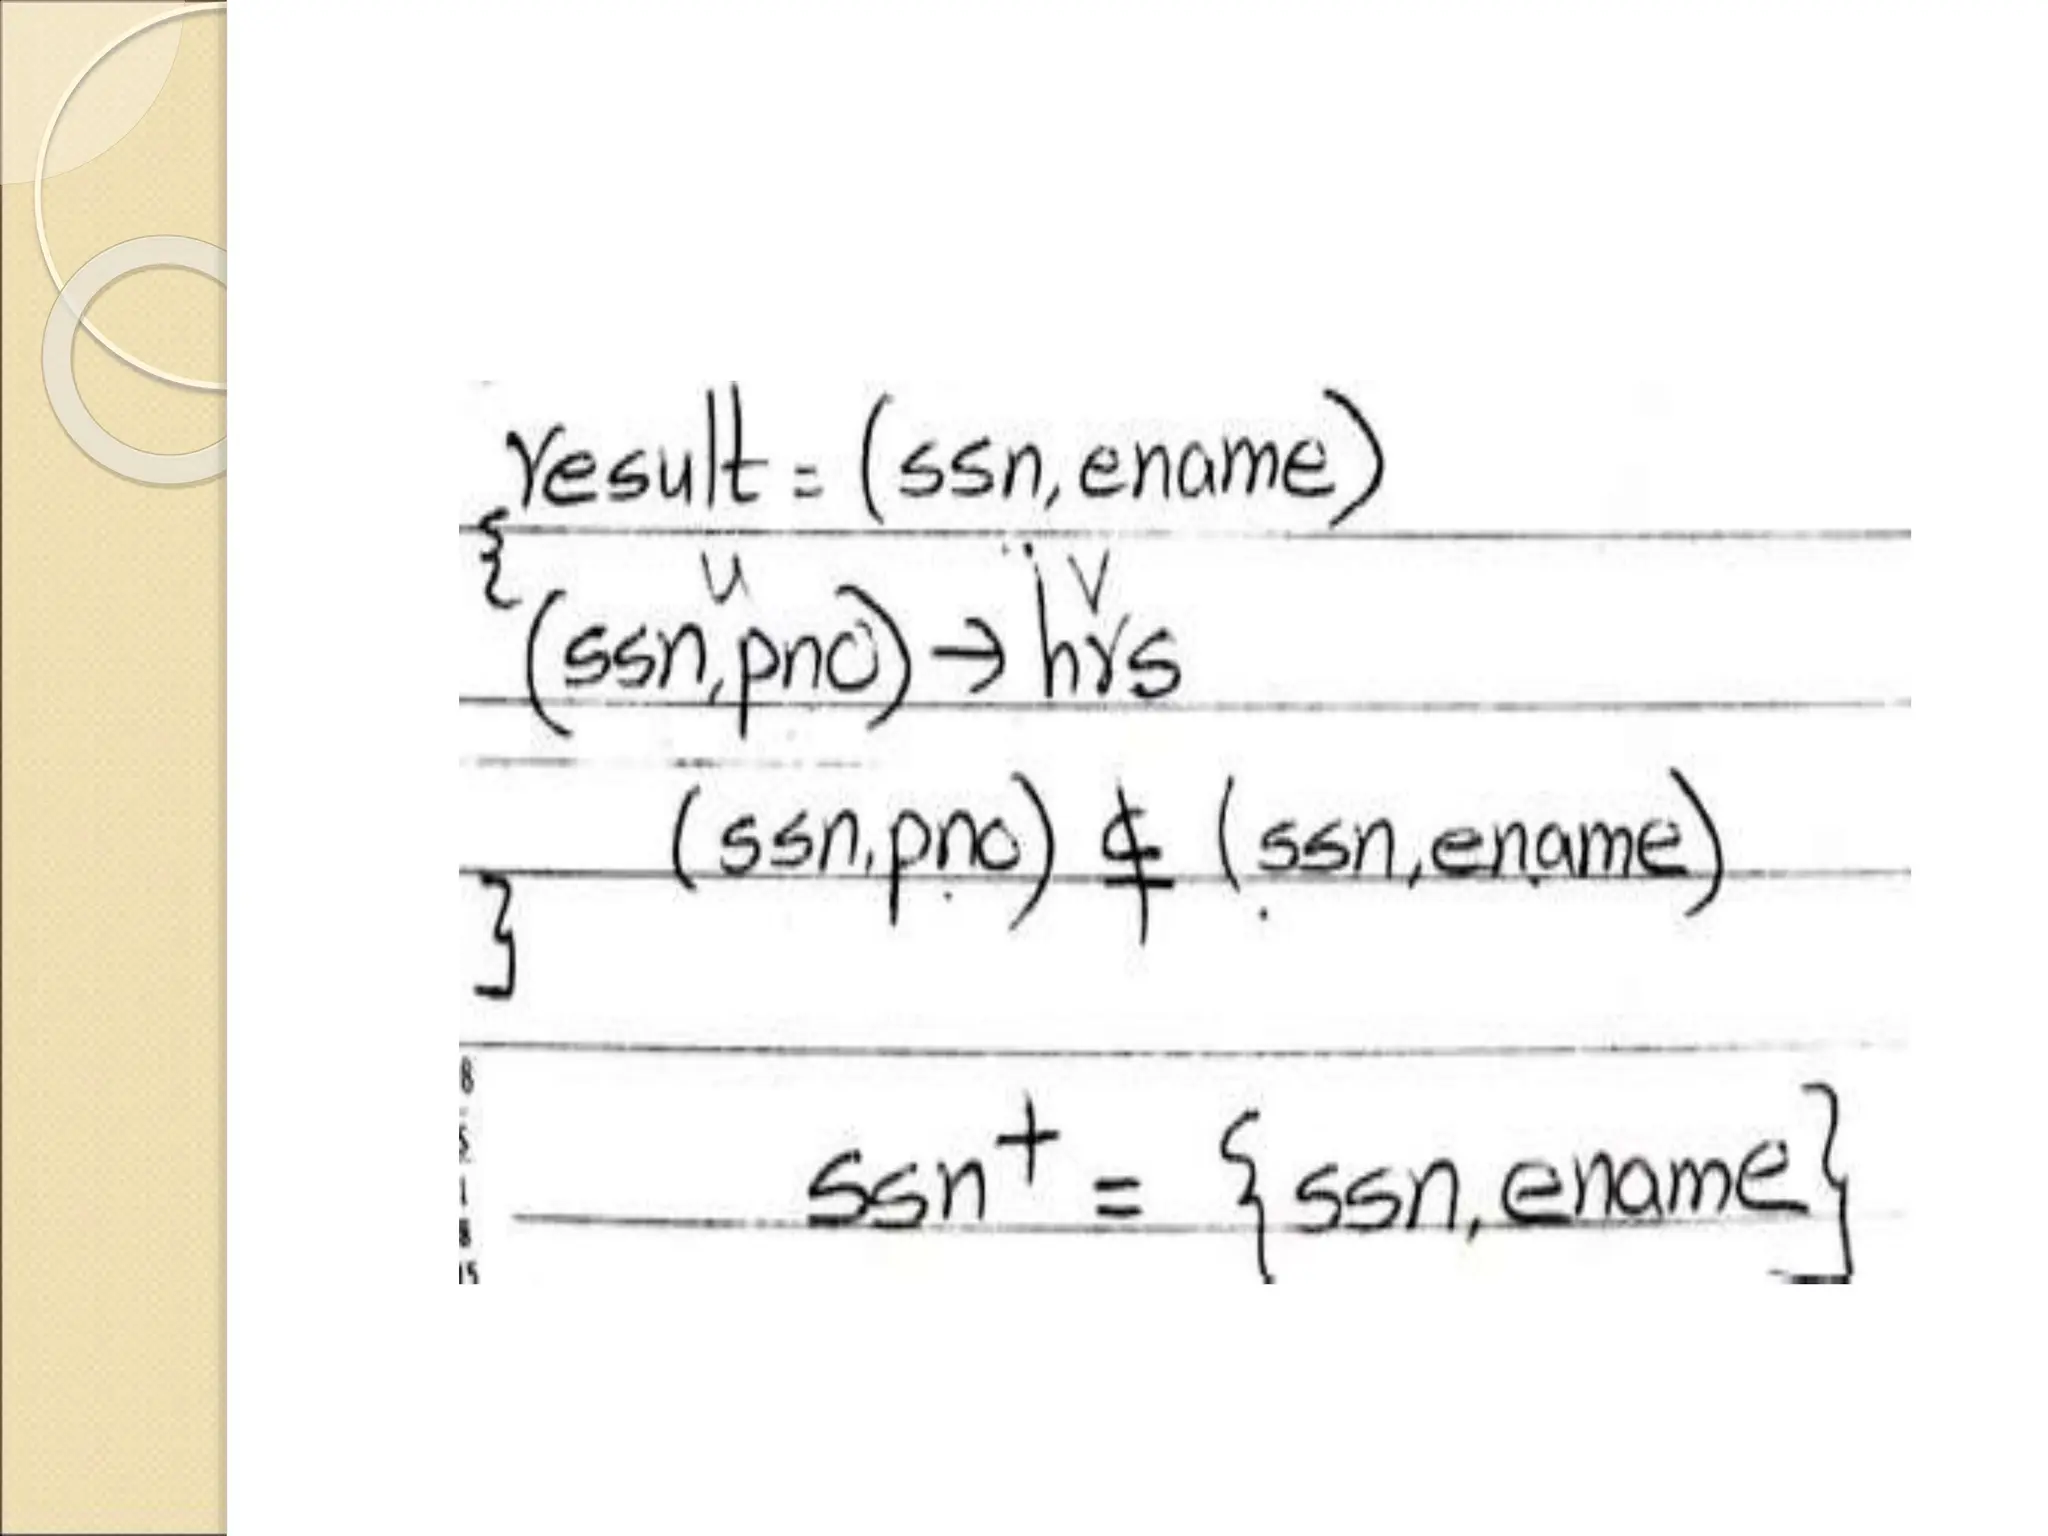 result = (ssn, ename)
{
u v
(ssn, pno) → hrs
(ssn, pno) ⊈ (ssn, ename)
}
ssn⁺ = {ssn, ename}